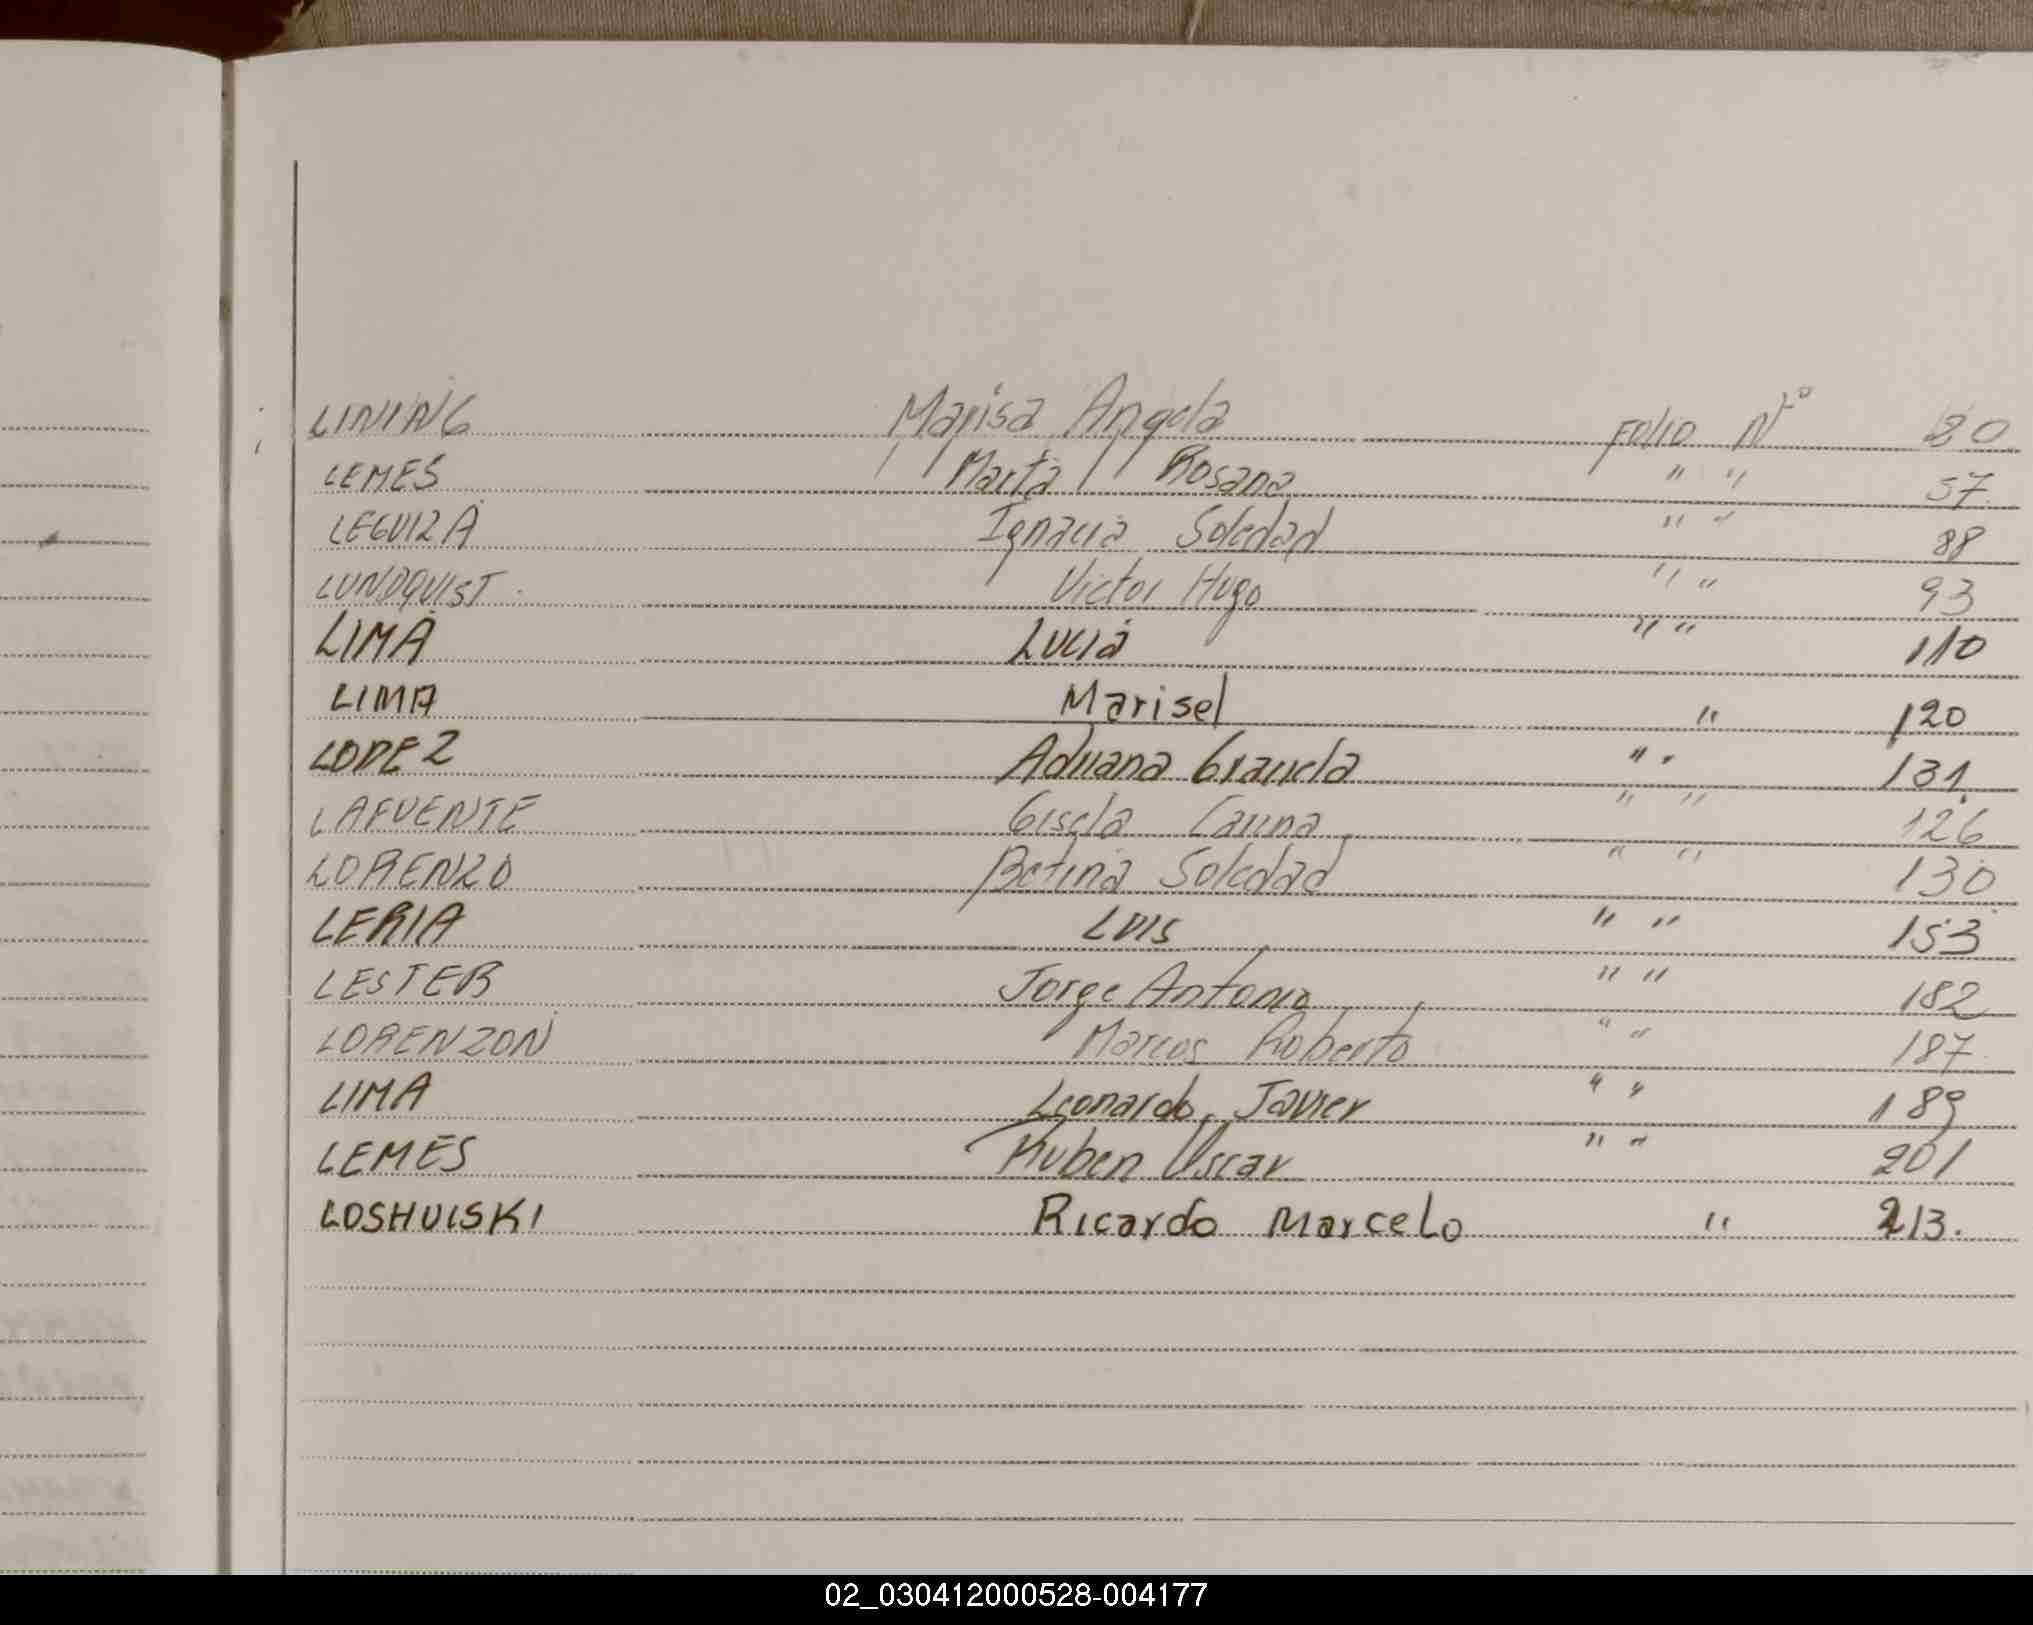 LINING Marisa Angela FOLIO Nº 20
LEMES Marta Rosana " " 57
LEGUIZA Ignacia Soledad " " 88
LUNDQUIST Victor Hugo " " 93
LIMA Lucia " " 110
LIMA Marisel " 120
LOPEZ Adriana Graciela " " 131
LAFUENTE Gisela Carina " " 126
LORENZO Betina Soledad " " 130
LERIA LUIS " " 153
LESTER Jorge Antonio " " 182
LORENZON Marcos Roberto " " 187
LIMA Leonardo Javier " " 189
LEMES Ruben Oscar " " 201
LOSHUISKI Ricardo Marcelo " 213.
02_030412000528-004177